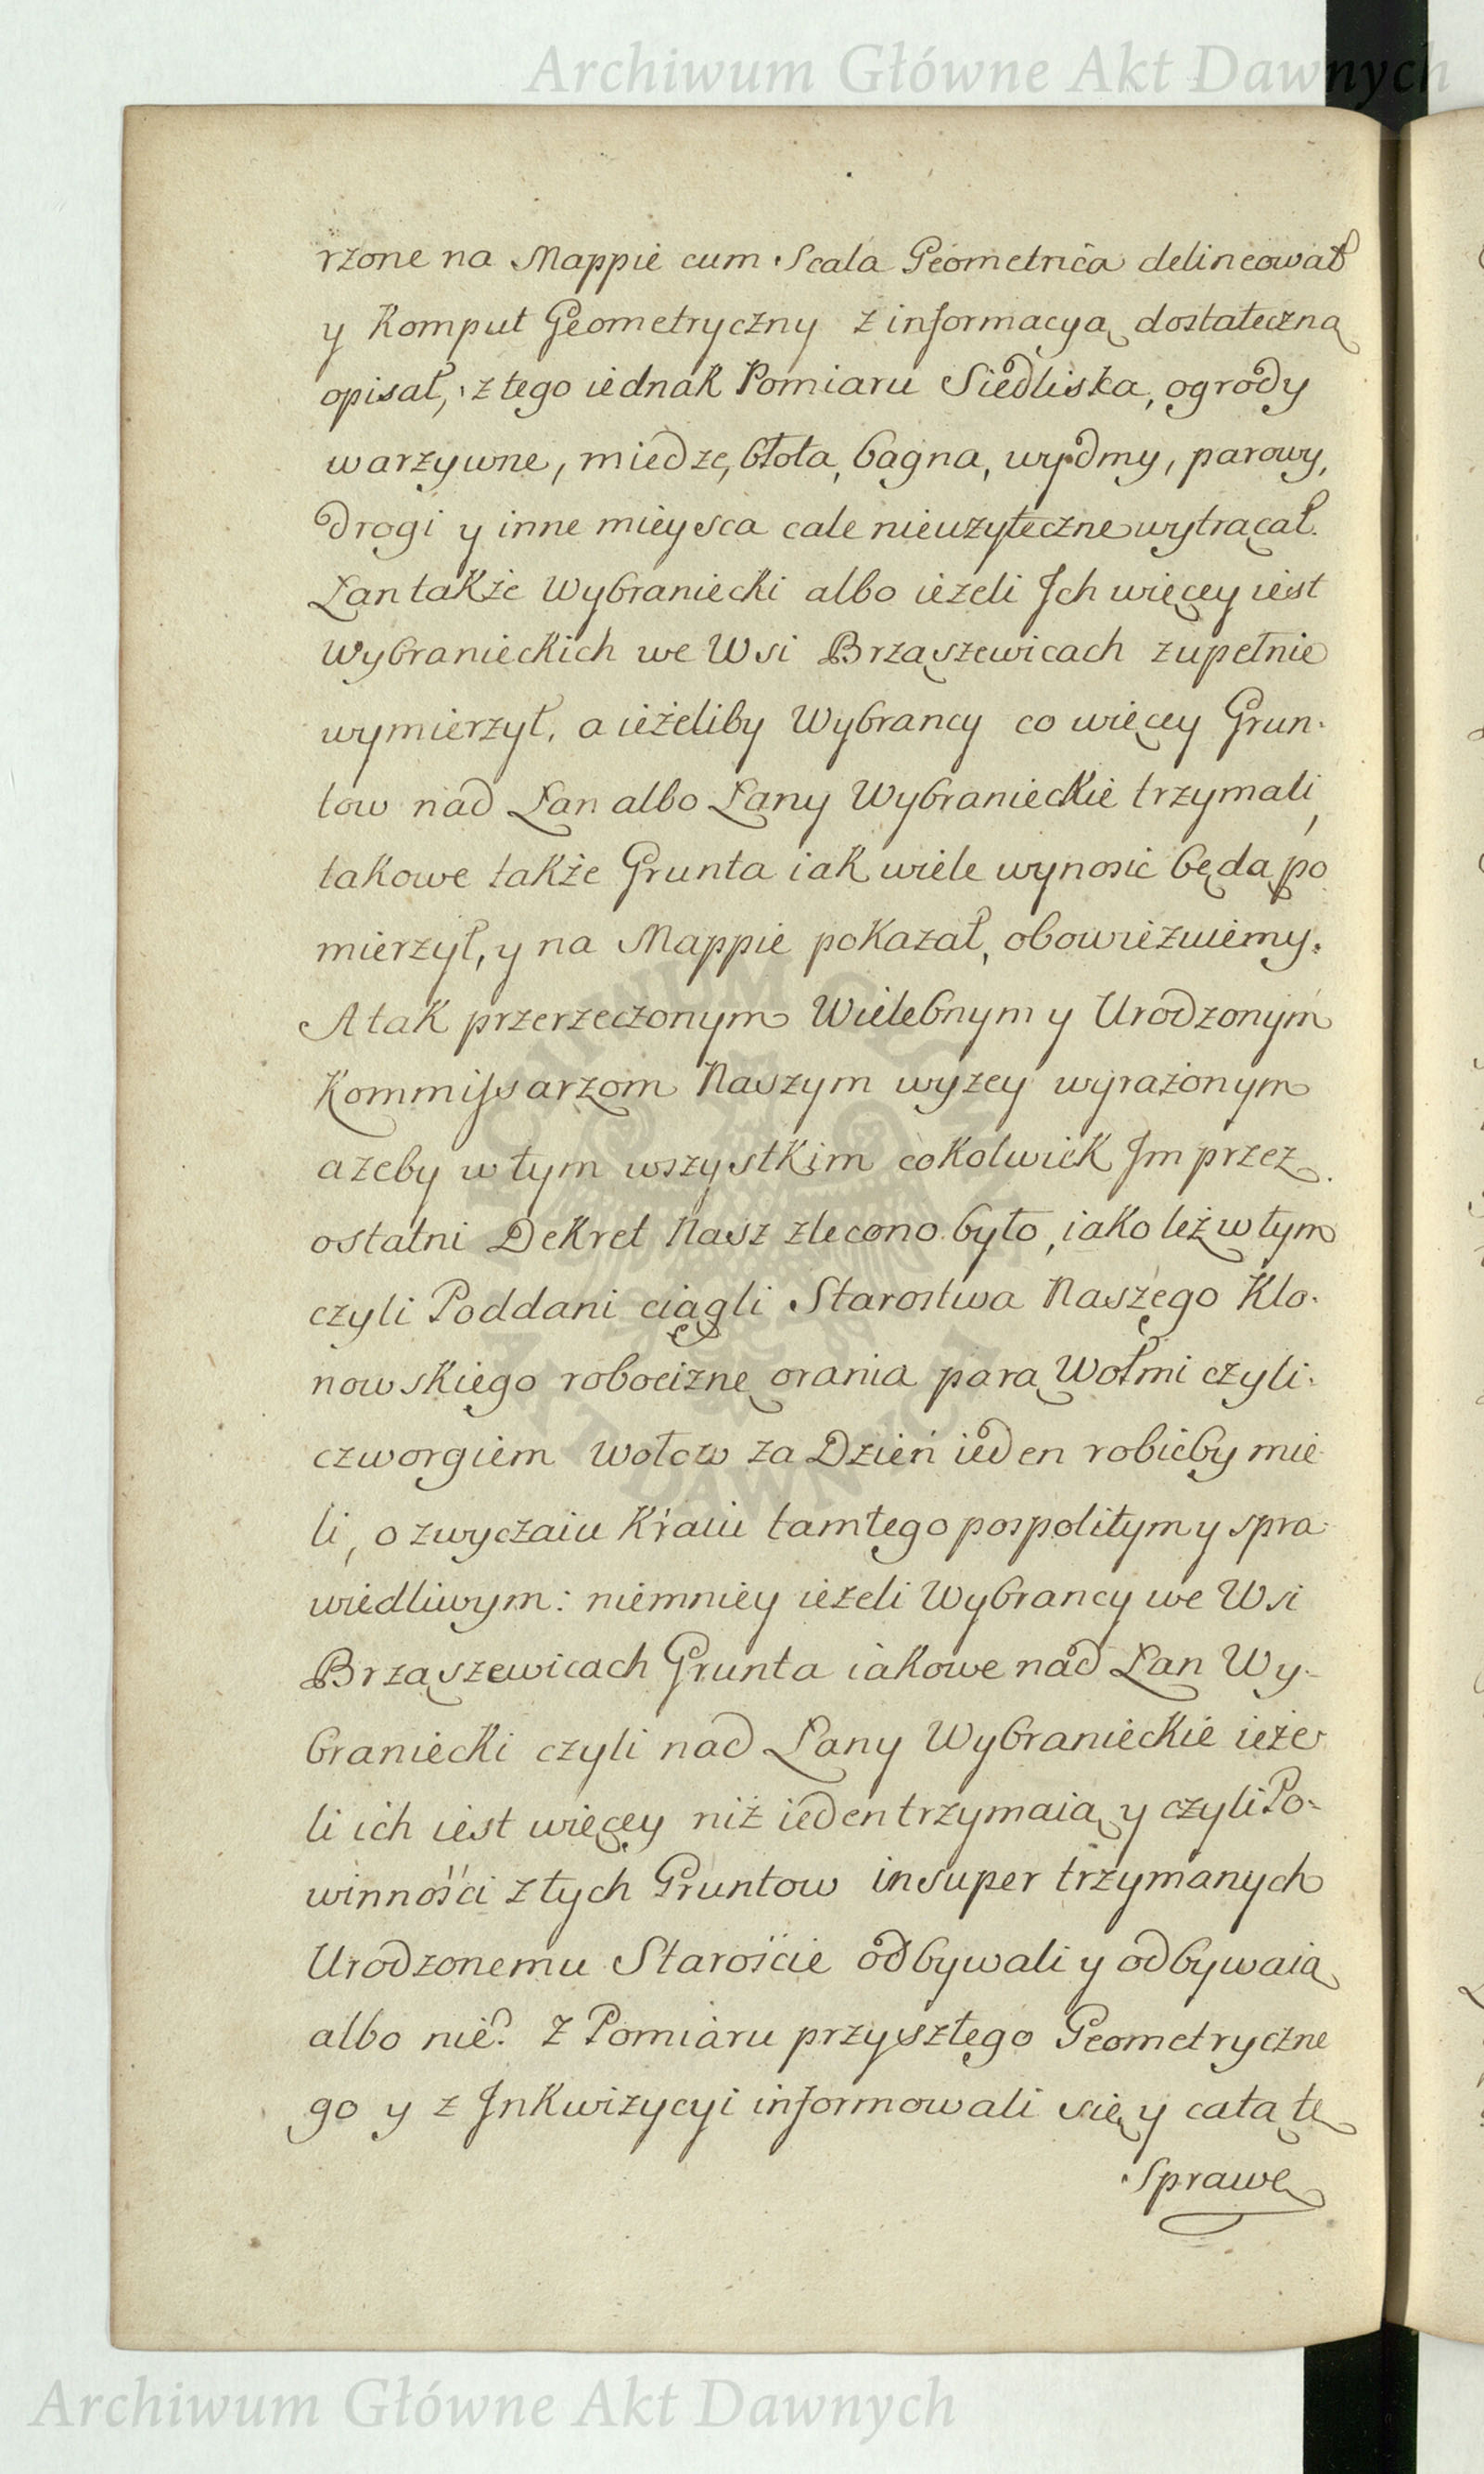 Archiwum Główne Akt Dawnych
rzone na Mappie cum Scala Geometrica delineował
y Komput Geometryczny z informacyą dostateczną
opisał, z tego iednak Pomiaru Siedliska, ogrody
warzywne, miedze, błota, bagna, wydmy, parowy,
drogi y inne mieysca cale nieużyteczne wytrącał.
Łan także Wybraniecki albo ieżeli Jch więcey iest
Wybranieckich we Wsi Brząszewicach zupełnie
wymierzył, a ieżeliby Wybrancy co więcey Grun-
tow nad Łan albo Łany Wybranieckie trzymali,
takowe także Grunta iak wiele wynosic będą po
mierzył, y na Mappie pokazał, obowiezuiemy.
A tak przerzeczonym Wielebnym y Urodzonym
Kommissarzom Naszym wyzey wyrażonym
ażeby w tym wszystkim cokolwiek Jm przez
ostatni Dekret Nasz zlecono było, iako też w tym
czyli Poddani ciągli Starostwa Naszego Klo-
nowskiego robociznę orania parą Wołmi czyli
czworgiem Wołow za Dzień ieden robićby mie
li, o zwyczaiu Kraiu tamtego pospolitym y spra-
wiedliwym: niemniey ieżeli Wybrancy we Wsi
Brząszewicach Grunta iakowe nad Łan Wy-
braniecki czyli nad Łany Wybranieckie ieże
li ich iest więcey niż ieden trzymaią y czyli Po-
winności z tych Gruntow insuper trzymanych
Urodzonemu Staroście odbywali y odbywaią
albo nie? Z Pomiaru przyszłego Geometryczne
go y z Jnkwizycyi informowali się y całą tę
Sprawę
Archiwum Główne Akt Dawnych
ARCHIWUM GŁÓWNE AKT DAWNYCH